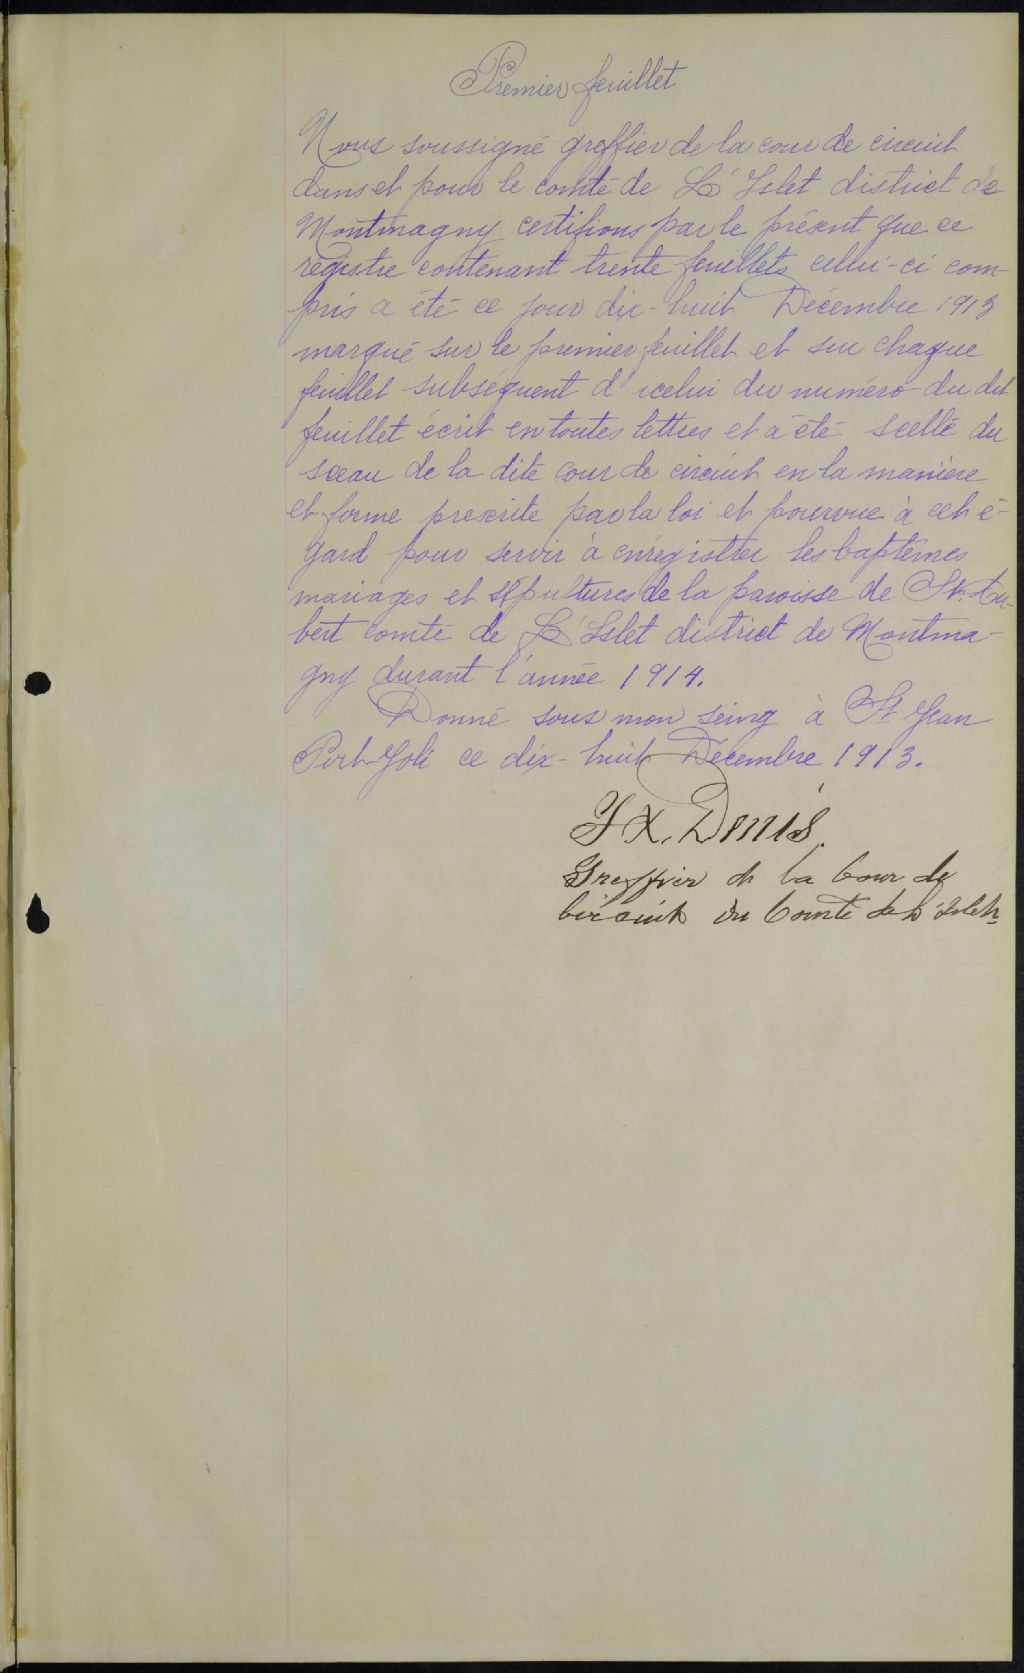 Premier feuillet
Nous soussigné greffier de la cour de circuit
dans et pour le comté de L'Islet district de
Montmagny certifions par le présent que ce
régistre contenant trente feuillets celui-ci com-
pris a été ce jour dix-huit Décembre 1913
marqué sur le premier feuillet et sur chaque
feuillet subséquent d'icelui du numéro du dit
feuillet écrit en toutes lettres et a été scellé du
sceau de la dite cour de circuit en la manière
et forme prescrite par la loi et pourvue à cet é-
gard pour servir à enrégistrer les baptêmes
mariages et sépultures de la paroisse de St. Au-
bert comté de L'Islet district de Montma-
gny durant l'année 1914.
Donné sous mon seing à St Jean
Port-Joli ce dix-huit Décembre 1913.
F X. Denis
Greffier de la Cour de
Circuit du Comté de L'Islet